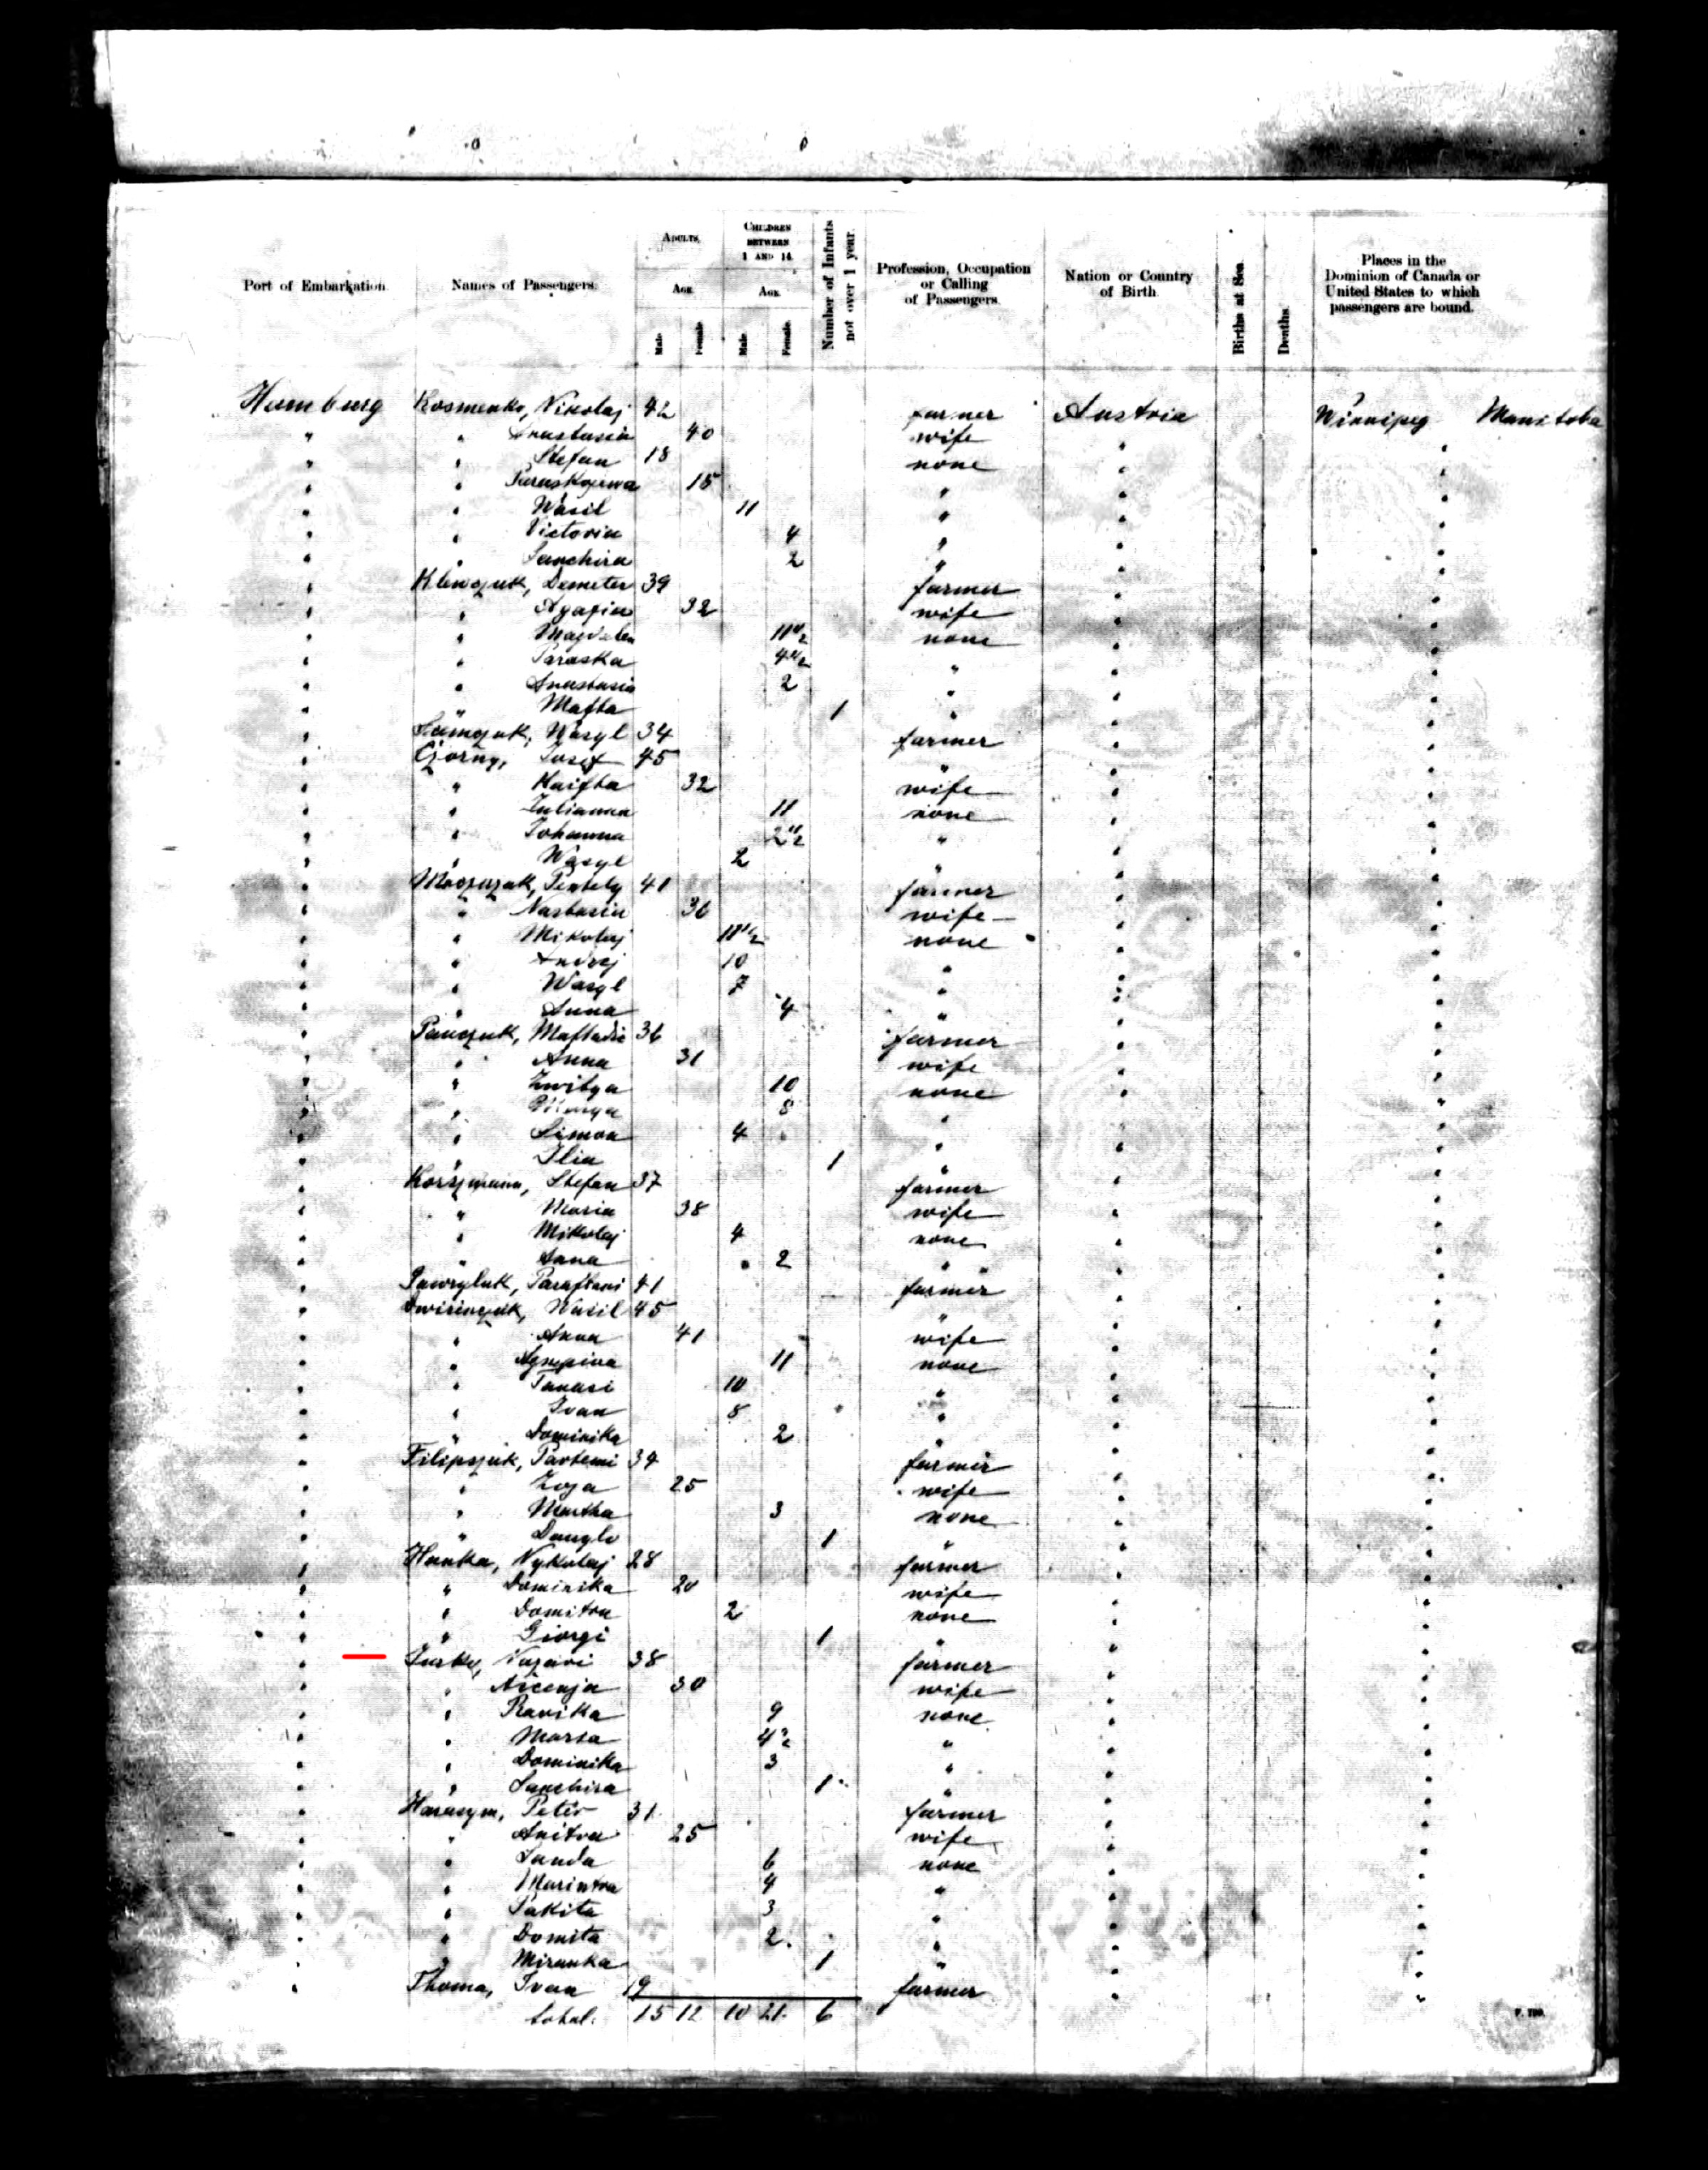 Port of Embarkation. Names of Passengers. ADULTS, AGE. Male Female CHILDREN BETWEEN 1 AND 14. AGE. Male. Female. Number of Infants not over 1 year. Profession, Occupation or Calling of Passengers. Nation or Country of Birth. Births at Sea. Deaths. Places in the Dominion of Canada or United States to which passengers are bound.
Hamburg Kosmenko, Nikolaj 42 farmer Austria Winnipeg Manitoba
" " Anastasia 40 wife " "
" " Stefan 18 none " "
" " Paraskyewa 15 " " "
" " Wasil 11 " " "
" " Victoria 4 " " "
" " Sanchira 2 " " "
" Klewczuk, Demeter 39 farmer " "
" " Agafia 32 wife " "
" " Magdalen 11 1/2 none " "
" " Paraska 4 1/2 " " "
" " Anastasia 2 " " "
" " Mafta 1 " " "
" Semczuk, Wasyl 34 farmer " "
" Czorny, Josef 45 " " "
" " Haifta 32 wife " "
" " Julianna 11 none " "
" " Johanna 2 1/2 " " "
" " Wasyl 2 " " "
" Pentely 41 farmer " "
" " Nastasia 36 wife " "
" " Mikolaj 11 1/2 none " "
" " Andrej 10 " " "
" " Wasyl 7 " " "
" " Anna 4 " " "
" Panczuk, Maftadie 36 farmer " "
" " Anna 31 wife " "
" " 10 none " "
" " Marya 8 " " "
" " Simon 4 " " "
" " Ilia 1 " " "
" Korszmann, Stefan 37 farmer " "
" " Maria 38 wife " "
" " Mikolaj 4 none " "
" " Anna 2 " " "
" Gawryluk, Parafteni 41 farmer " "
" Swirinczuk, Wasil 45 " " "
" " Anna 41 wife " "
" " Agrepina 11 none " "
" " Tanasi 10 " " "
" " Ivan 8 " " "
" " Dominika 2 " " "
" Filipszuk, Partemi 34 farmer " "
" " Zoja 25 wife " "
" " Martha 3 none " "
" " Danylo 1 " " "
" Hanka, Nykolaj 28 farmer " "
" " Dominika 20 wife " "
" " Domitru 2 none " "
" " Giorgi 1 " " "
" Nazari 38 farmer " "
" " Axenja 30 wife " "
" " Ravika 9 none " "
" " Marsa 4 1/2 " " "
" " Dominika 3 " " "
" " Sanchira 1 " " "
" Harasym, Peter 31 farmer " "
" " Anitra 25 wife " "
" " Sanda 6 none " "
" " Marintra 4 " " "
" " Sakita 3 " " "
" " Domita 2 " " "
" " Miranka 1 " " "
" Thoma, Ivan 19 farmer " "
total. 15 12 10 21 6